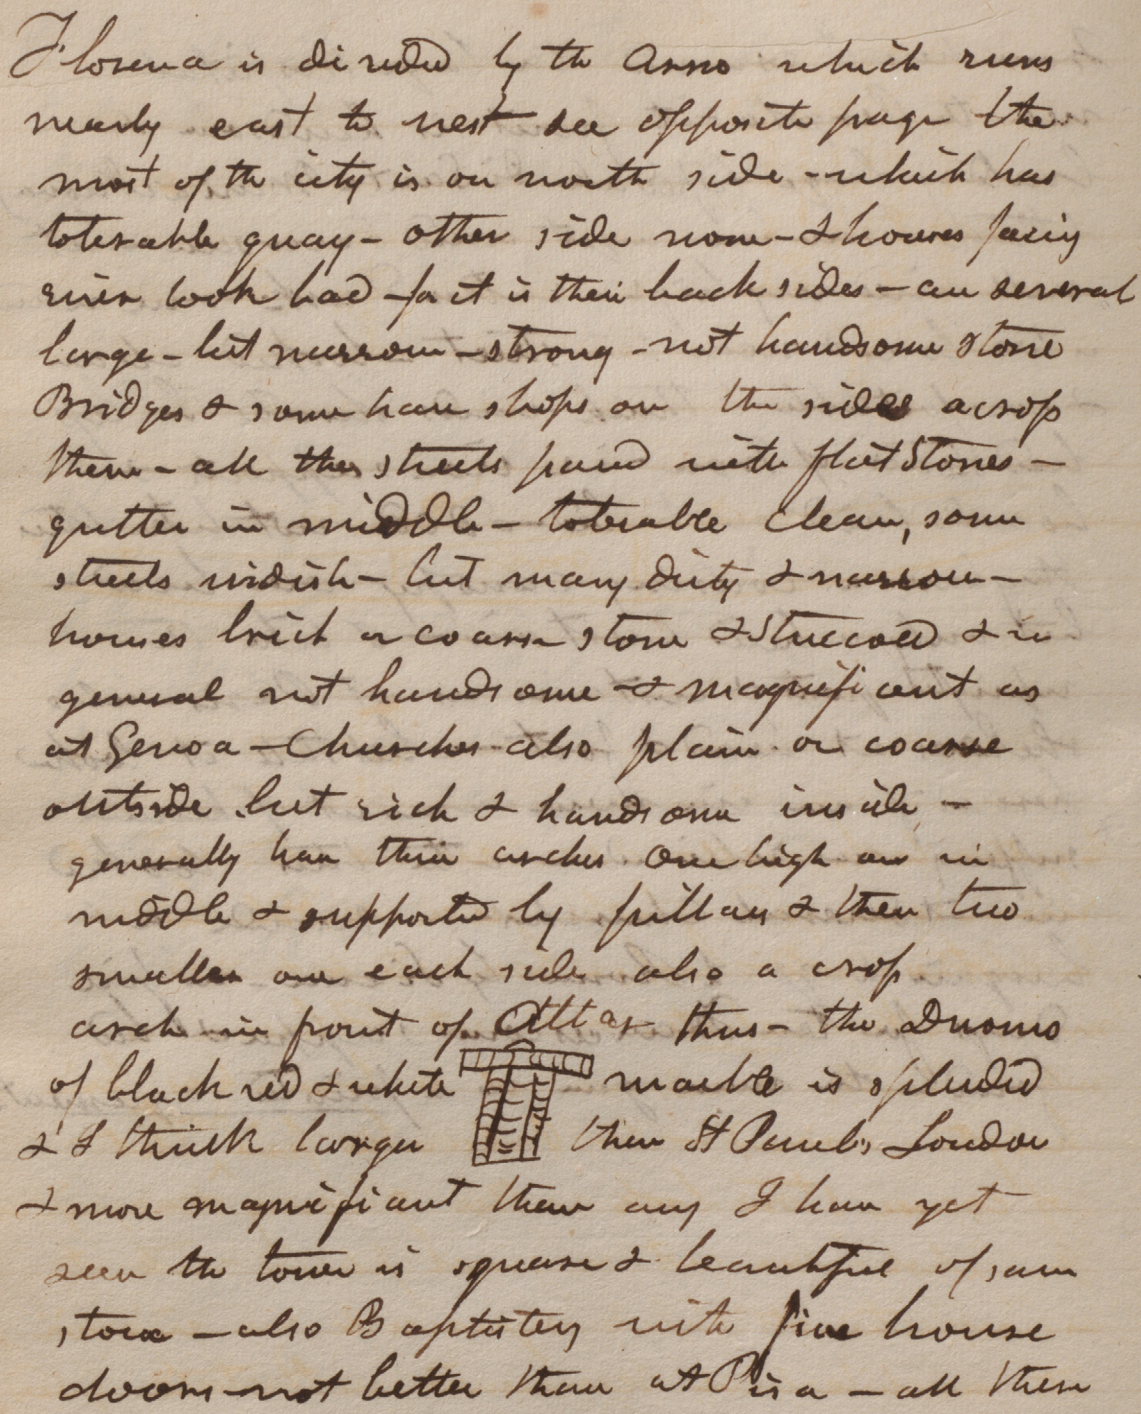 Florence is divided by the Arno which runs
nearly east to west see opposite page the
most of the city is on north side - which has
tolerable quay - other side none - & houses facing
river look bad - for it is their back sides - are several
large - but narrow - strong - not handsome stone
Bridges & some have shops on the sides across
them - all the streets paved with flat Stones -
gutter in middle - tolerable clean, some
streets widish - but many dirty & narrow -
houses brick or coarse stone & Stuccoed & in
general not handsome & magnificent as
at Genoa - Churches also plain or coarse
outside but rich & handsome inside -
generally have three arches one high one in
middle & supported by pillars & then two
smaller one each side also a cross
arch in front of Altar thus - the Duomo
of black red & white marble is splendid
& I think larger then St Pauls London
& more magnificent than any I have yet
seen the tower is square & beautiful of same
stone - also Baptistery with fine
doors - not better than at Pisa - all these